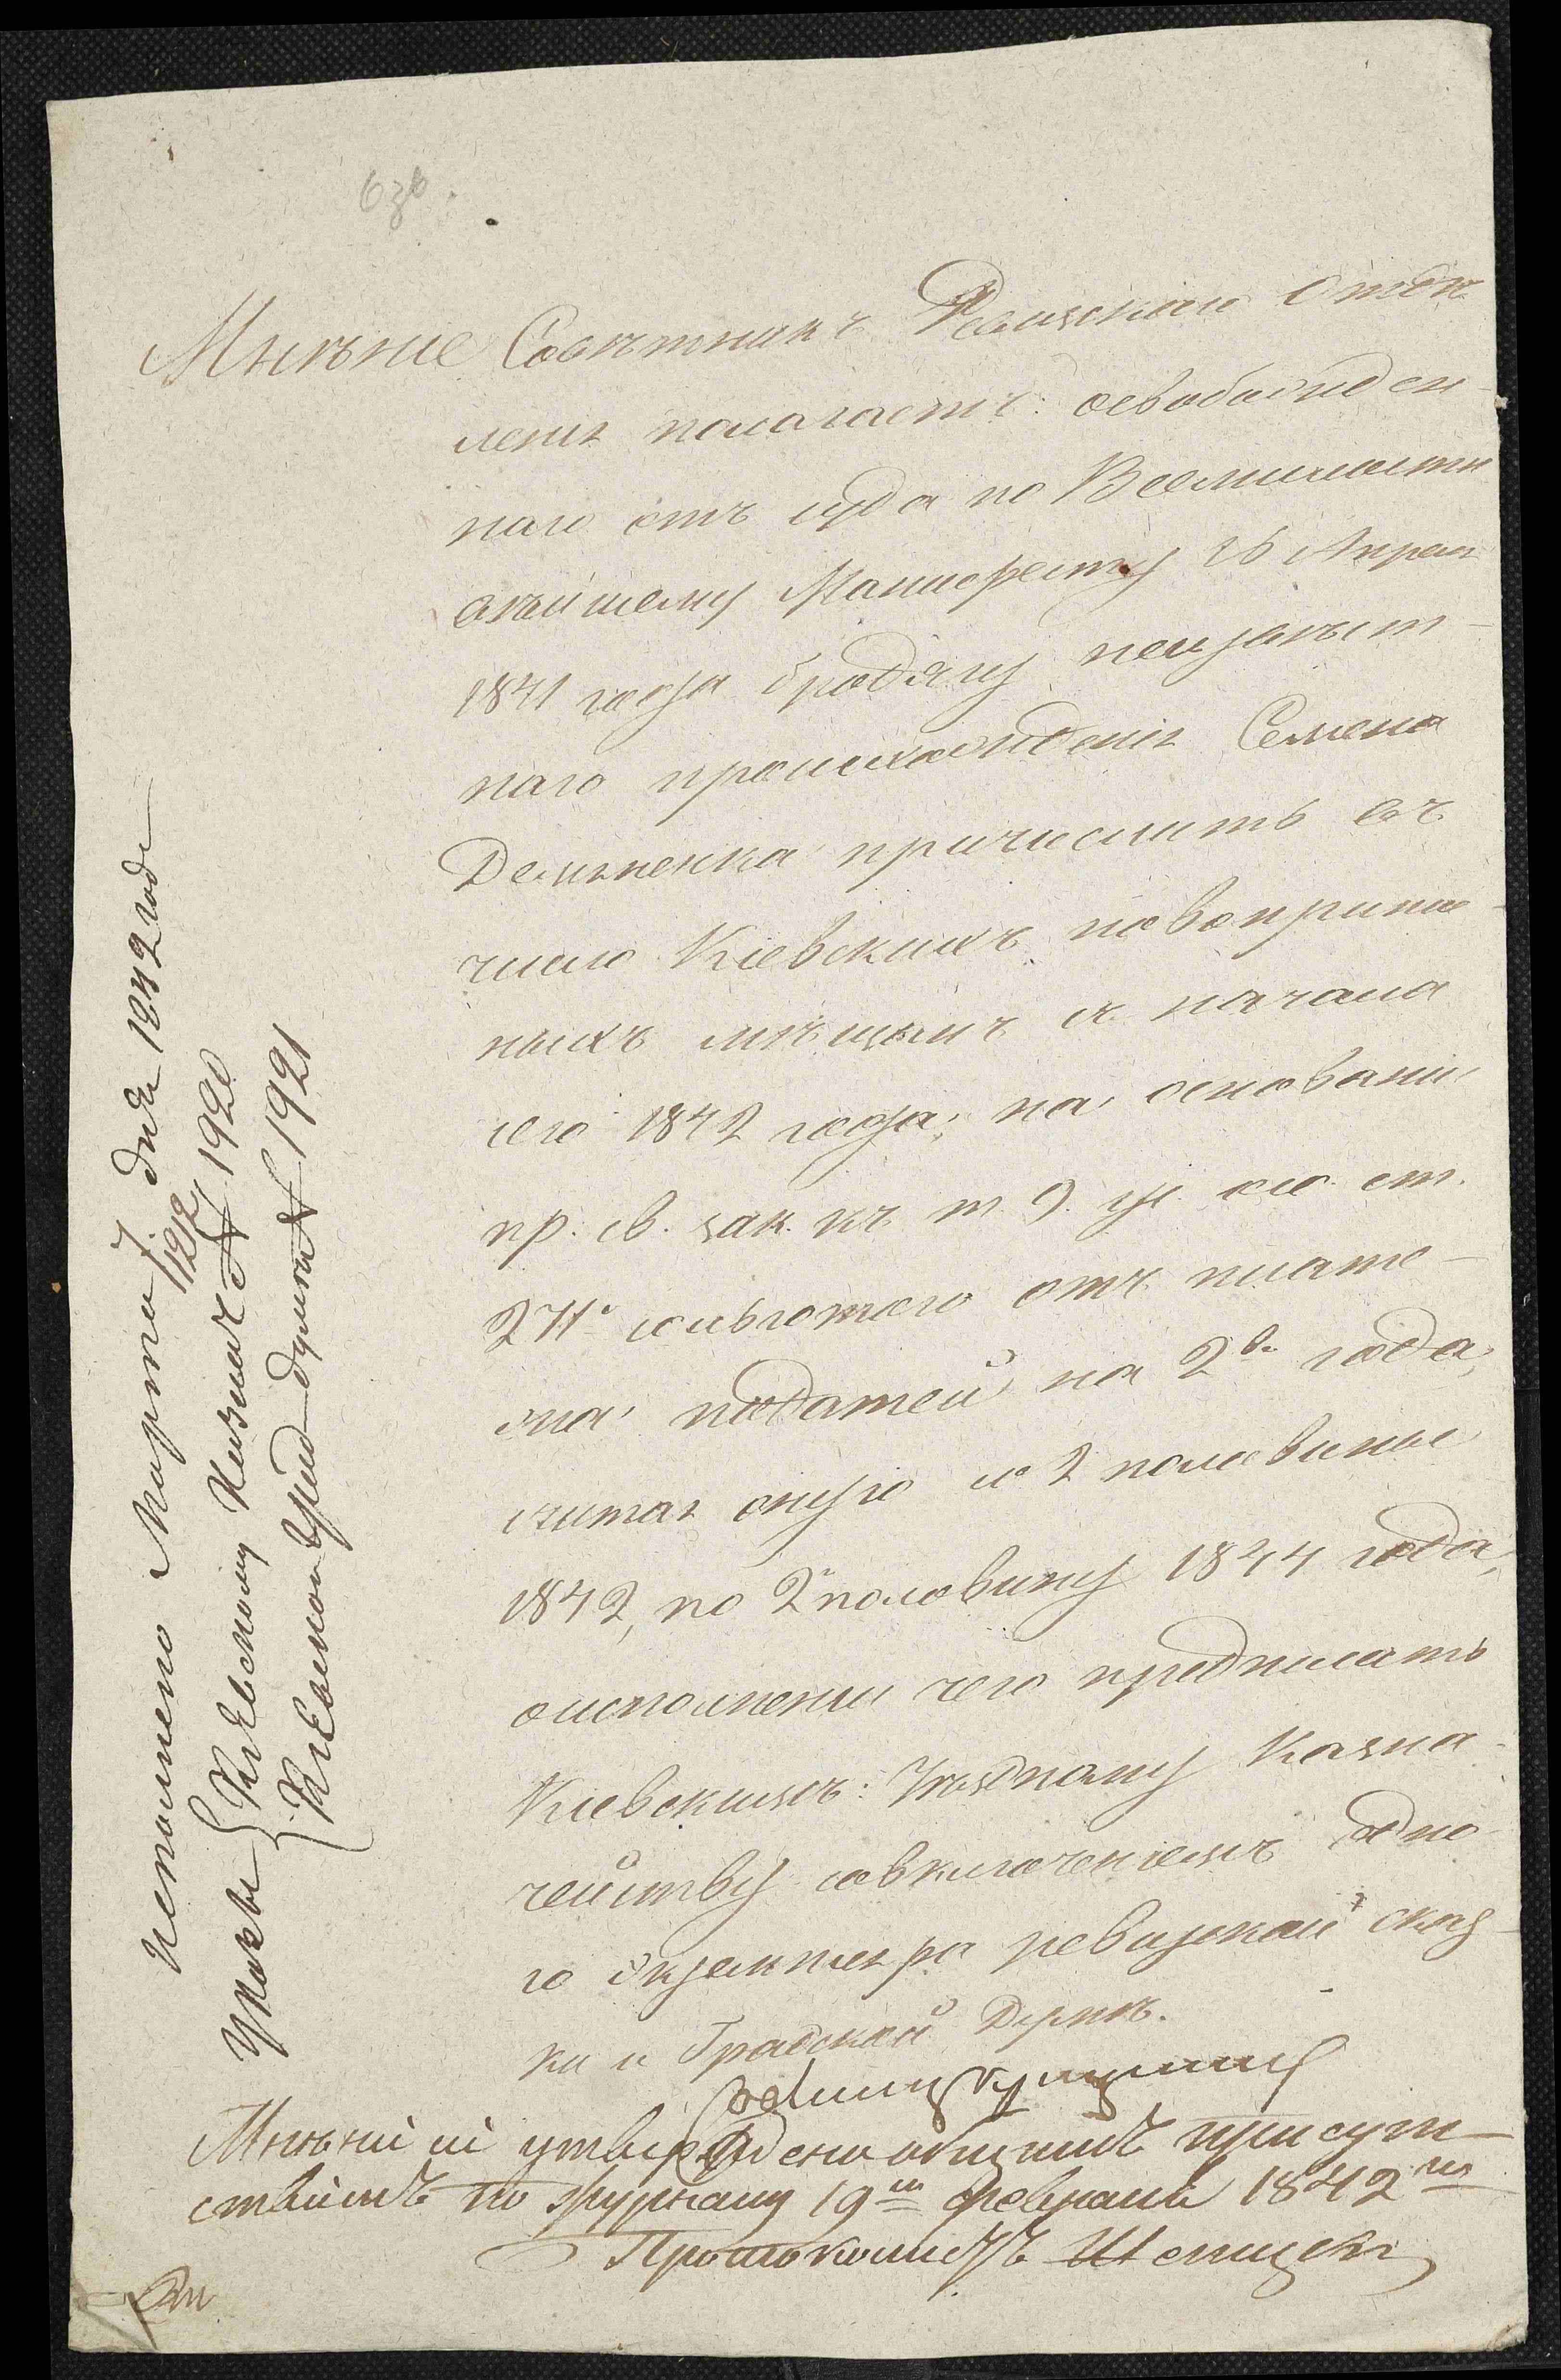 Мнѣніе Совѣтникъ Ревизскаго Отдѣ
ленія полагаетъ: освобожден-
наго отъ суда по Всемилости
вѣйшему Манифесту 16 Апрѣля
1841 года бродягу неизвѣст-
наго происхожденія Семена
Демьяненка причислить въ
число Кіевскихъ новоприпис
ныхъ мѣщанъ съ начала
сего 1842 года; на основаніи
пр. св. зак. къ т. 9. ст.
271 сольготою отъ плате-
жа податей на 2ва года,
считая оную со 2 половины
1842, по 2ю половину 1844 года,
о исполненіи чего предписать
Кіевскимъ: Уѣздному Казна-
чейству совключеніемъ одно
го экземпляра ревизской сказ
ки и Градской Думѣ.
Мнѣніе сіе утверждено общимъ присут-
ствіемъ по журналу 19го Февраля 1842го
Протоколистъ
Исполнено Марта 7. дня 1842 года
1212
Указы Кіевскому Казнач N 1920
Кіевской Град думѣ N 1921